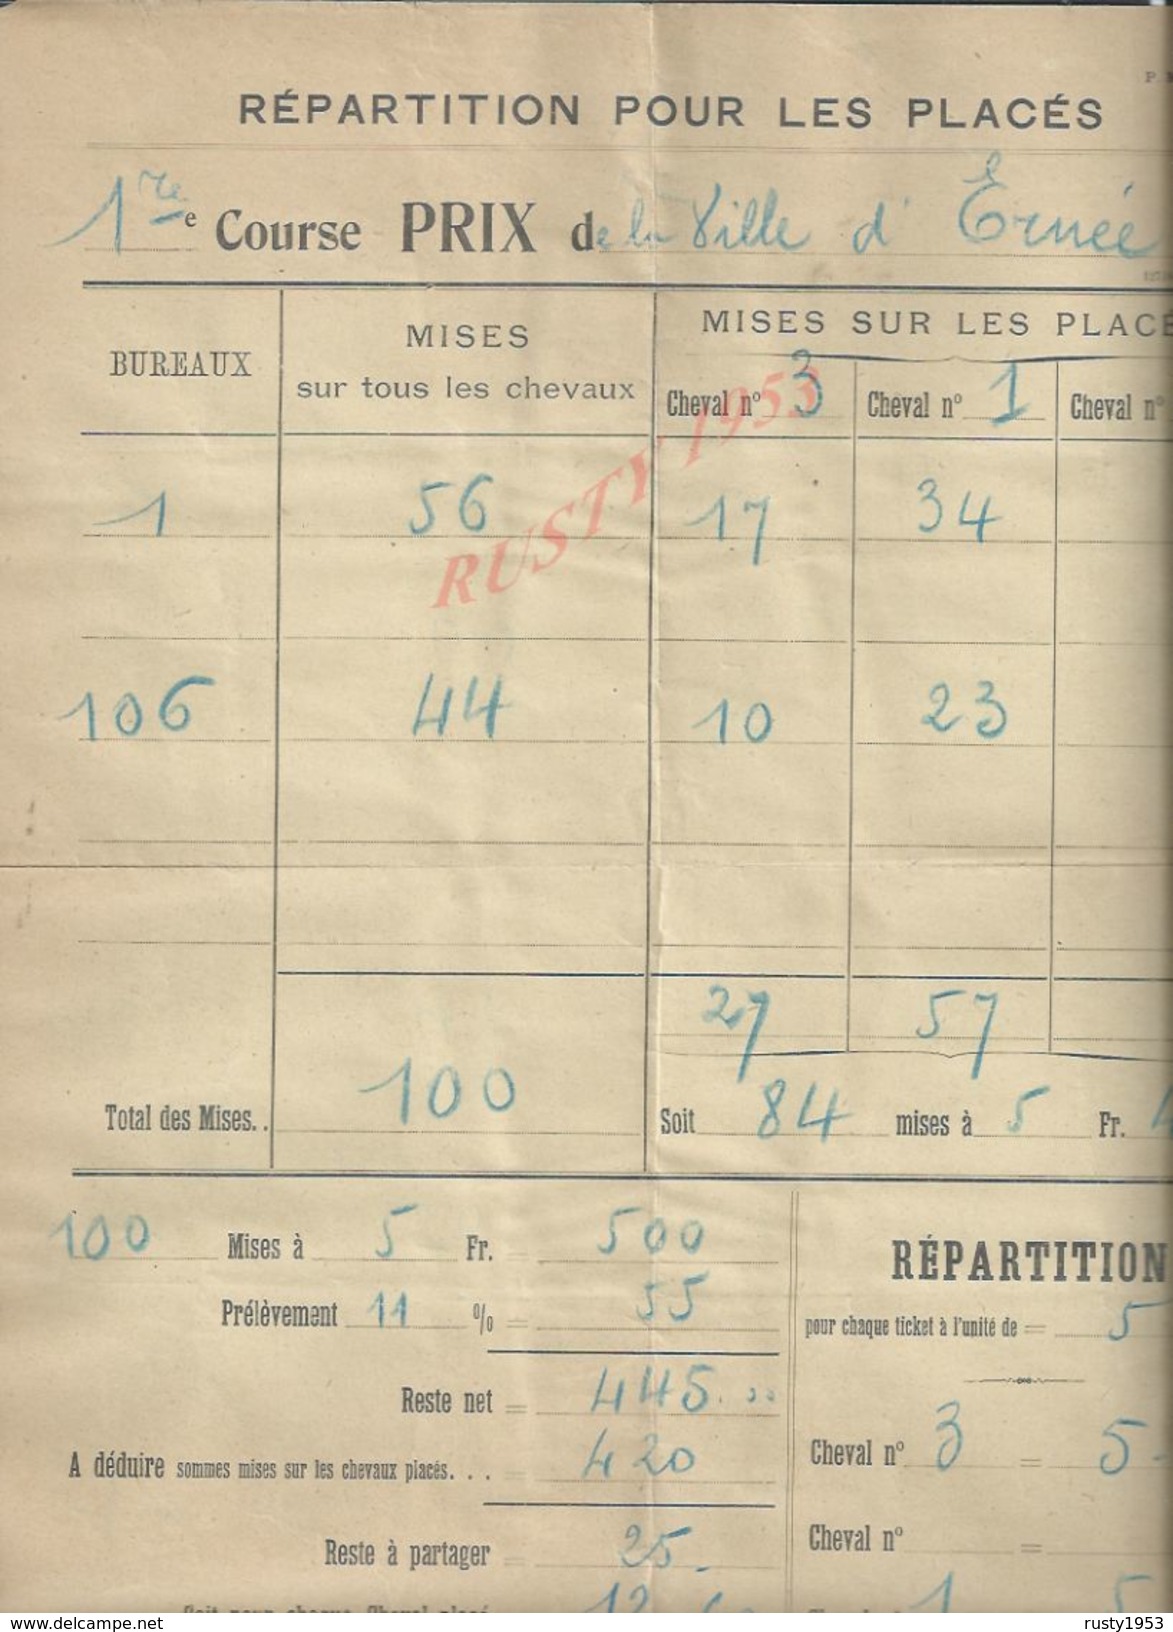 RÉPARTITION POUR LES PLACÉS
1re e Course PRIX de la Ville d' Ernée
BUREAUX
MISES
sur tous les chevaux
MISES SUR LES PLACÉ
Cheval nº 3 Cheval nº 1 Cheval nº
RUSTY 1953
1 56 17 34
106 44 10 23
27 57
Total des Mises.. 100 Soit 84 mises à 5 Fr.
100 Mises à 5 Fr. 500
Prélèvement 11 % = 55
Reste net = 445
A déduire sommes mises sur les chevaux placés... = 420
Reste à partager = 25
Soit pour chaque Cheval placé 12
RÉPARTITION
pour chaque ticket à l'unité de = 5
Cheval nº 3 = 5
Cheval nº =
1 5
www.delcampe.net
rusty1953